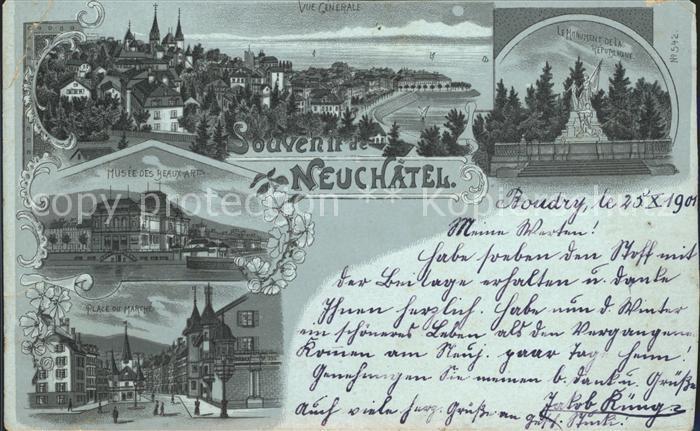 VUE GÉNÉRALE
LE MONUMENT DE LA
RÉPUBLIQUE
No 542.
Souvenir de
NEUCHÂTEL.
MUSÉE DES BEAUX-ARTS
PLACE DU MARCHÉ
copy protection
Boudry, le 25 X 1901
Meine Werten!
Habe soeben den Stoff mit
der Beilage erhalten u. danke
Ihnen herzlich. Habe nun d. Winter
ein schöneres Leben als den Vergangenen
Komen am Neuj. paar Tag heim.
Genehmigen Sie meinen b. Dank u. Grüße
Jakob Küng
Auch viele herz. Grüße an